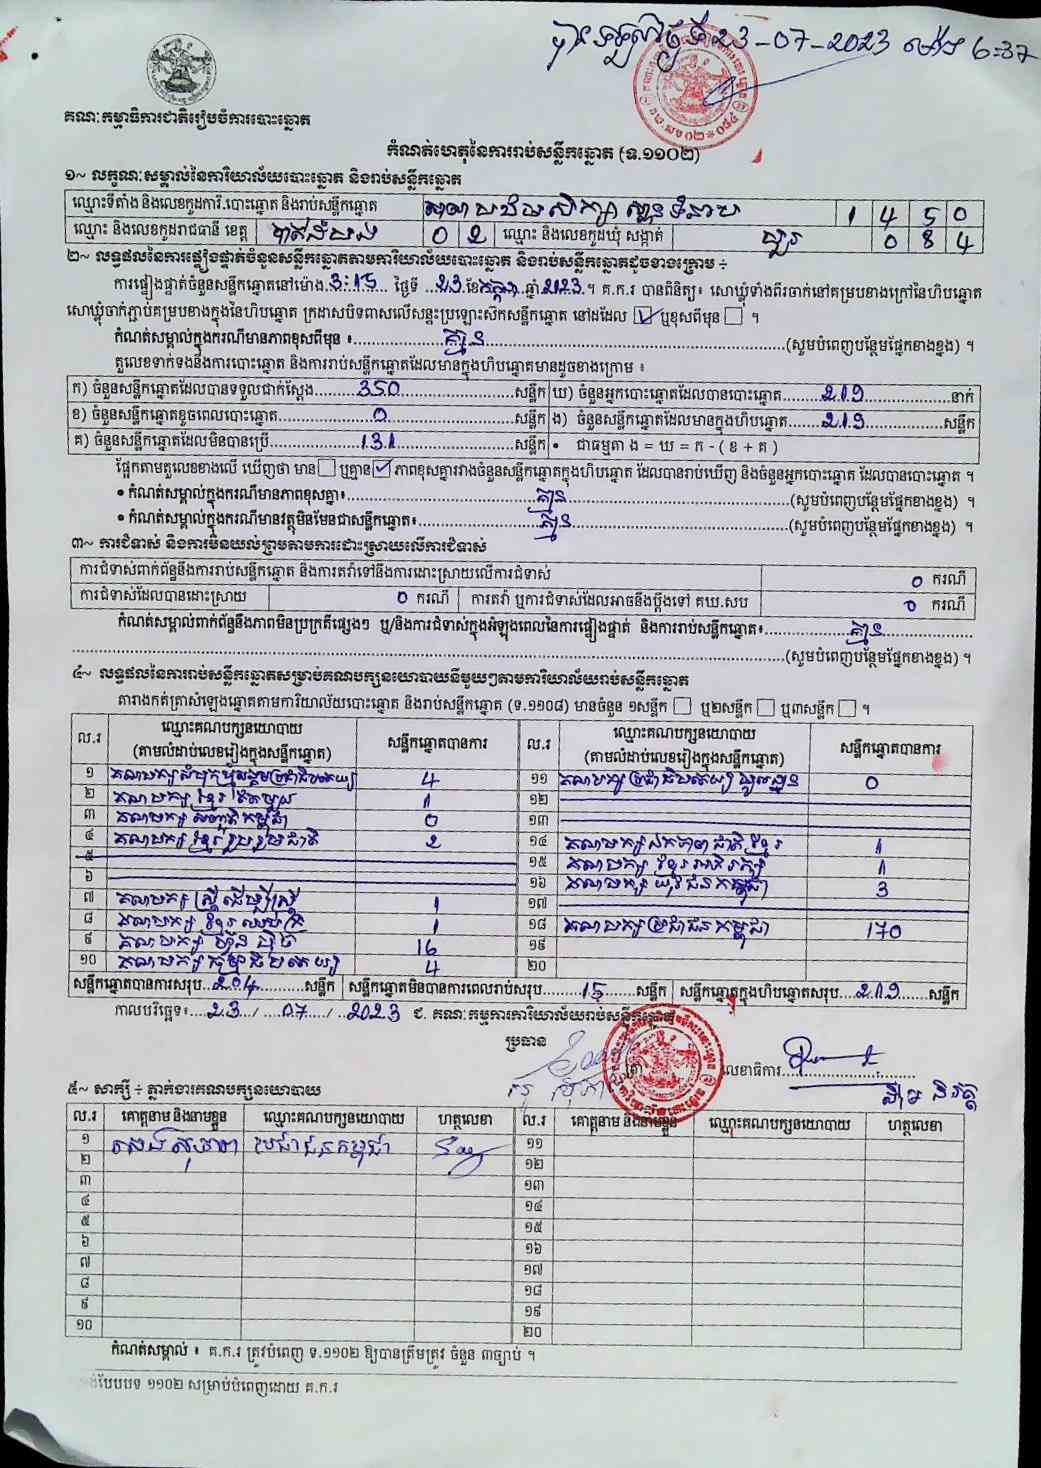 23-07-2023 ម៉ោង 6:37
គណៈកម្មាធិការជាតិរៀបចំការបោះឆ្នោត
កំណត់ហេតុនៃការរាប់សន្លឹកឆ្នោត (ទ.១១០២)
១~ លក្ខណៈសម្គាល់នៃការិយាល័យបោះឆ្នោត និងរាប់សន្លឹកឆ្នោត
ឈ្មោះទីតាំង និងលេខកូដការិ.បោះឆ្នោត និងរាប់សន្លឹកឆ្នោត 1450
ឈ្មោះ និងលេខកូដរាជធានី ខេត្ត បាត់ដំបង 02 ឈ្មោះ និងលេខកូដឃុំ សង្កាត់ 084
២~ លទ្ធផលនៃការផ្ទៀងផ្ទាត់ចំនួនសន្លឹកឆ្នោតតាមការិយាល័យបោះឆ្នោត និងរាប់សន្លឹកឆ្នោតដូចខាងក្រោម ÷
ការផ្ទៀងផ្ទាត់ចំនួនសន្លឹកឆ្នោតនៅម៉ោង 3:15 ថ្ងៃទី 23 ខែ កក្កដា ឆ្នាំ 2023 ។ គ.ក.រ បានពិនិត្យ៖ សោឃ្លុំទាំងពីរចាក់នៅគម្របខាងក្រៅនៃហិបឆ្នោត
សោឃ្លុំចាក់ភ្ជាប់គម្របខាងក្នុងនៃហិបឆ្នោត ក្រដាសបិទពាសលើសន្ទះប្រឡោះសឹកសន្លឹកឆ្នោត នៅដដែល ☑ ឬខុសពីមុន ☐ ។
កំណត់សម្គាល់ក្នុងករណីមានភាពខុសពីមុន ៖ គ្មាន (សូមបំពេញបន្ថែមផ្នែកខាងខ្នង) ។
តួលេខទាក់ទងនឹងការបោះឆ្នោត និងការរាប់សន្លឹកឆ្នោតដែលមានក្នុងហិបឆ្នោតមានដូចខាងក្រោម ៖
ក) ចំនួនសន្លឹកឆ្នោតដែលបានទទួលជាក់ស្តែង 350 សន្លឹក ឃ) ចំនួនអ្នកបោះឆ្នោតដែលបានបោះឆ្នោត 219 នាក់
ខ) ចំនួនសន្លឹកឆ្នោតខូចពេលបោះឆ្នោត 0 សន្លឹក ង) ចំនួនសន្លឹកឆ្នោតដែលមានក្នុងហិបឆ្នោត 219 សន្លឹក
គ) ចំនួនសន្លឹកឆ្នោតដែលមិនបានប្រើ 131 សន្លឹក • ជាធម្មតា ង = ឃ = ក - ( ខ + គ )
ផ្អែកតាមតួលេខខាងលើ ឃើញថា មាន ☐ ឬគ្មាន ☑ ភាពខុសគ្នារវាងចំនួនសន្លឹកឆ្នោតក្នុងហិបឆ្នោត ដែលបានរាប់ឃើញ និងចំនួនអ្នកបោះឆ្នោត ដែលបានបោះឆ្នោត ។
• កំណត់សម្គាល់ក្នុងករណីមានភាពខុសគ្នា៖ គ្មាន (សូមបំពេញបន្ថែមផ្នែកខាងខ្នង) ។
• កំណត់សម្គាល់ក្នុងករណីមានវត្ថុមិនមែនជាសន្លឹកឆ្នោត៖ គ្មាន (សូមបំពេញបន្ថែមផ្នែកខាងខ្នង) ។
៣~ ការជំទាស់ និងការមិនយល់ព្រមតាមការដោះស្រាយលើការជំទាស់
ការជំទាស់ពាក់ព័ន្ធនឹងការរាប់សន្លឹកឆ្នោត និងការតវ៉ាទៅនឹងការដោះស្រាយលើការជំទាស់ 0 ករណី
ការជំទាស់ដែលបានដោះស្រាយ 0 ករណី ការតវ៉ា ឬការជំទាស់ដែលអាចនឹងប្តឹងទៅ គឃ.សប 0 ករណី
កំណត់សម្គាល់ពាក់ព័ន្ធនឹងភាពមិនប្រក្រតីផ្សេងៗ ឬ/និងការជំទាស់ក្នុងអំឡុងពេលនៃការផ្ទៀងផ្ទាត់ និងការរាប់សន្លឹកឆ្នោត៖ គ្មាន
(សូមបំពេញបន្ថែមផ្នែកខាងខ្នង) ។
៤~ លទ្ធផលនៃការរាប់សន្លឹកឆ្នោតសម្រាប់គណបក្សនយោបាយនីមួយៗតាមការិយាល័យរាប់សន្លឹកឆ្នោត
តារាងកត់ត្រាសំឡេងឆ្នោតតាមការិយាល័យបោះឆ្នោត និងរាប់សន្លឹកឆ្នោត (ទ.១១០៨) មានចំនួន ១សន្លឹក ☐ ឬ២សន្លឹក ☐ ឬ៣សន្លឹក ☐ ។
ល.រ ឈ្មោះគណបក្សនយោបាយ (តាមលំដាប់លេខរៀងក្នុងសន្លឹកឆ្នោត) សន្លឹកឆ្នោតបានការ ល.រ ឈ្មោះគណបក្សនយោបាយ (តាមលំដាប់លេខរៀងក្នុងសន្លឹកឆ្នោត) សន្លឹកឆ្នោតបានការ
១ គណបក្សសំបុកឃ្មុំសង្គមប្រជាធិបតេយ្យ 4 ១១ គណបក្សប្រជាធិបតេយ្យមូលដ្ឋាន 0
២ គណបក្សខ្មែរតែមួយ 1 ១២
៣ គណបក្សសញ្ជាតិកម្ពុជា 0 ១៣
៤ គណបក្សខ្មែររួបរួមជាតិ 2 ១៤ គណបក្សឯកភាពជាតិខ្មែរ 1
៥ ១៥ គណបក្សខ្មែរអភិរក្ស 1
៦ ១៦ គណបក្សយុវជនកម្ពុជា 3
៧ គណបក្សស្ត្រីដើម្បីស្ត្រី 1 ១៧
៨ 1 ១៨ គណបក្សប្រជាជនកម្ពុជា 170
៩ គណបក្សហ្វ៊ុនស៊ិនប៉ិច 16 ១៩
១០ គណបក្សកម្លាំងប្រជាធិបតេយ្យ 4 ២០
សន្លឹកឆ្នោតបានការសរុប 204 សន្លឹក សន្លឹកឆ្នោតមិនបានការពេលរាប់សរុប 15 សន្លឹក សន្លឹកឆ្នោតក្នុងហិបឆ្នោតសរុប 219 សន្លឹក
កាលបរិច្ឆេទ៖ 23 / 07 / 2023 ជ. គណៈកម្មការការិយាល័យរាប់សន្លឹកឆ្នោត
ប្រធាន
លេខាធិការ
៥~ សាក្សី ÷ ភ្នាក់ងារគណបក្សនយោបាយ
ល.រ គោត្តនាម និងនាមខ្លួន ឈ្មោះគណបក្សនយោបាយ ហត្ថលេខា ល.រ គោត្តនាម និងនាមខ្លួន ឈ្មោះគណបក្សនយោបាយ ហត្ថលេខា
១ ប្រជាជនកម្ពុជា ១១
២ ១២
៣ ១៣
៤ ១៤
៥ ១៥
៦ ១៦
៧ ១៧
៨ ១៨
៩ ១៩
១០ ២០
កំណត់សម្គាល់ ៖ គ.ក.រ ត្រូវបំពេញ ទ.១១០២ ឱ្យបានត្រឹមត្រូវ ចំនួន ៣ច្បាប់ ។
បែបបទ ១១០២ សម្រាប់បំពេញដោយ គ.ក.រ